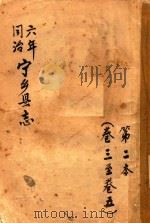 六年
同治
宁乡县志
第二本
(卷三至卷五